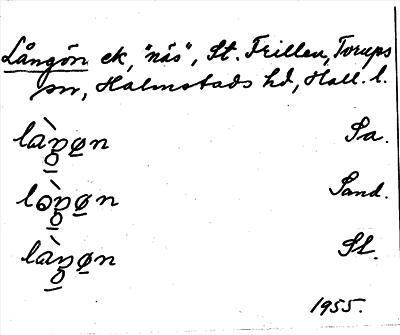 Långön ek, "näs", St. Frillen, Torups
sn, Halmstads hd, Hall. l.
làŋøn Sa.
lo̊̀ŋøn Sand.
làŋøn St.
1955.